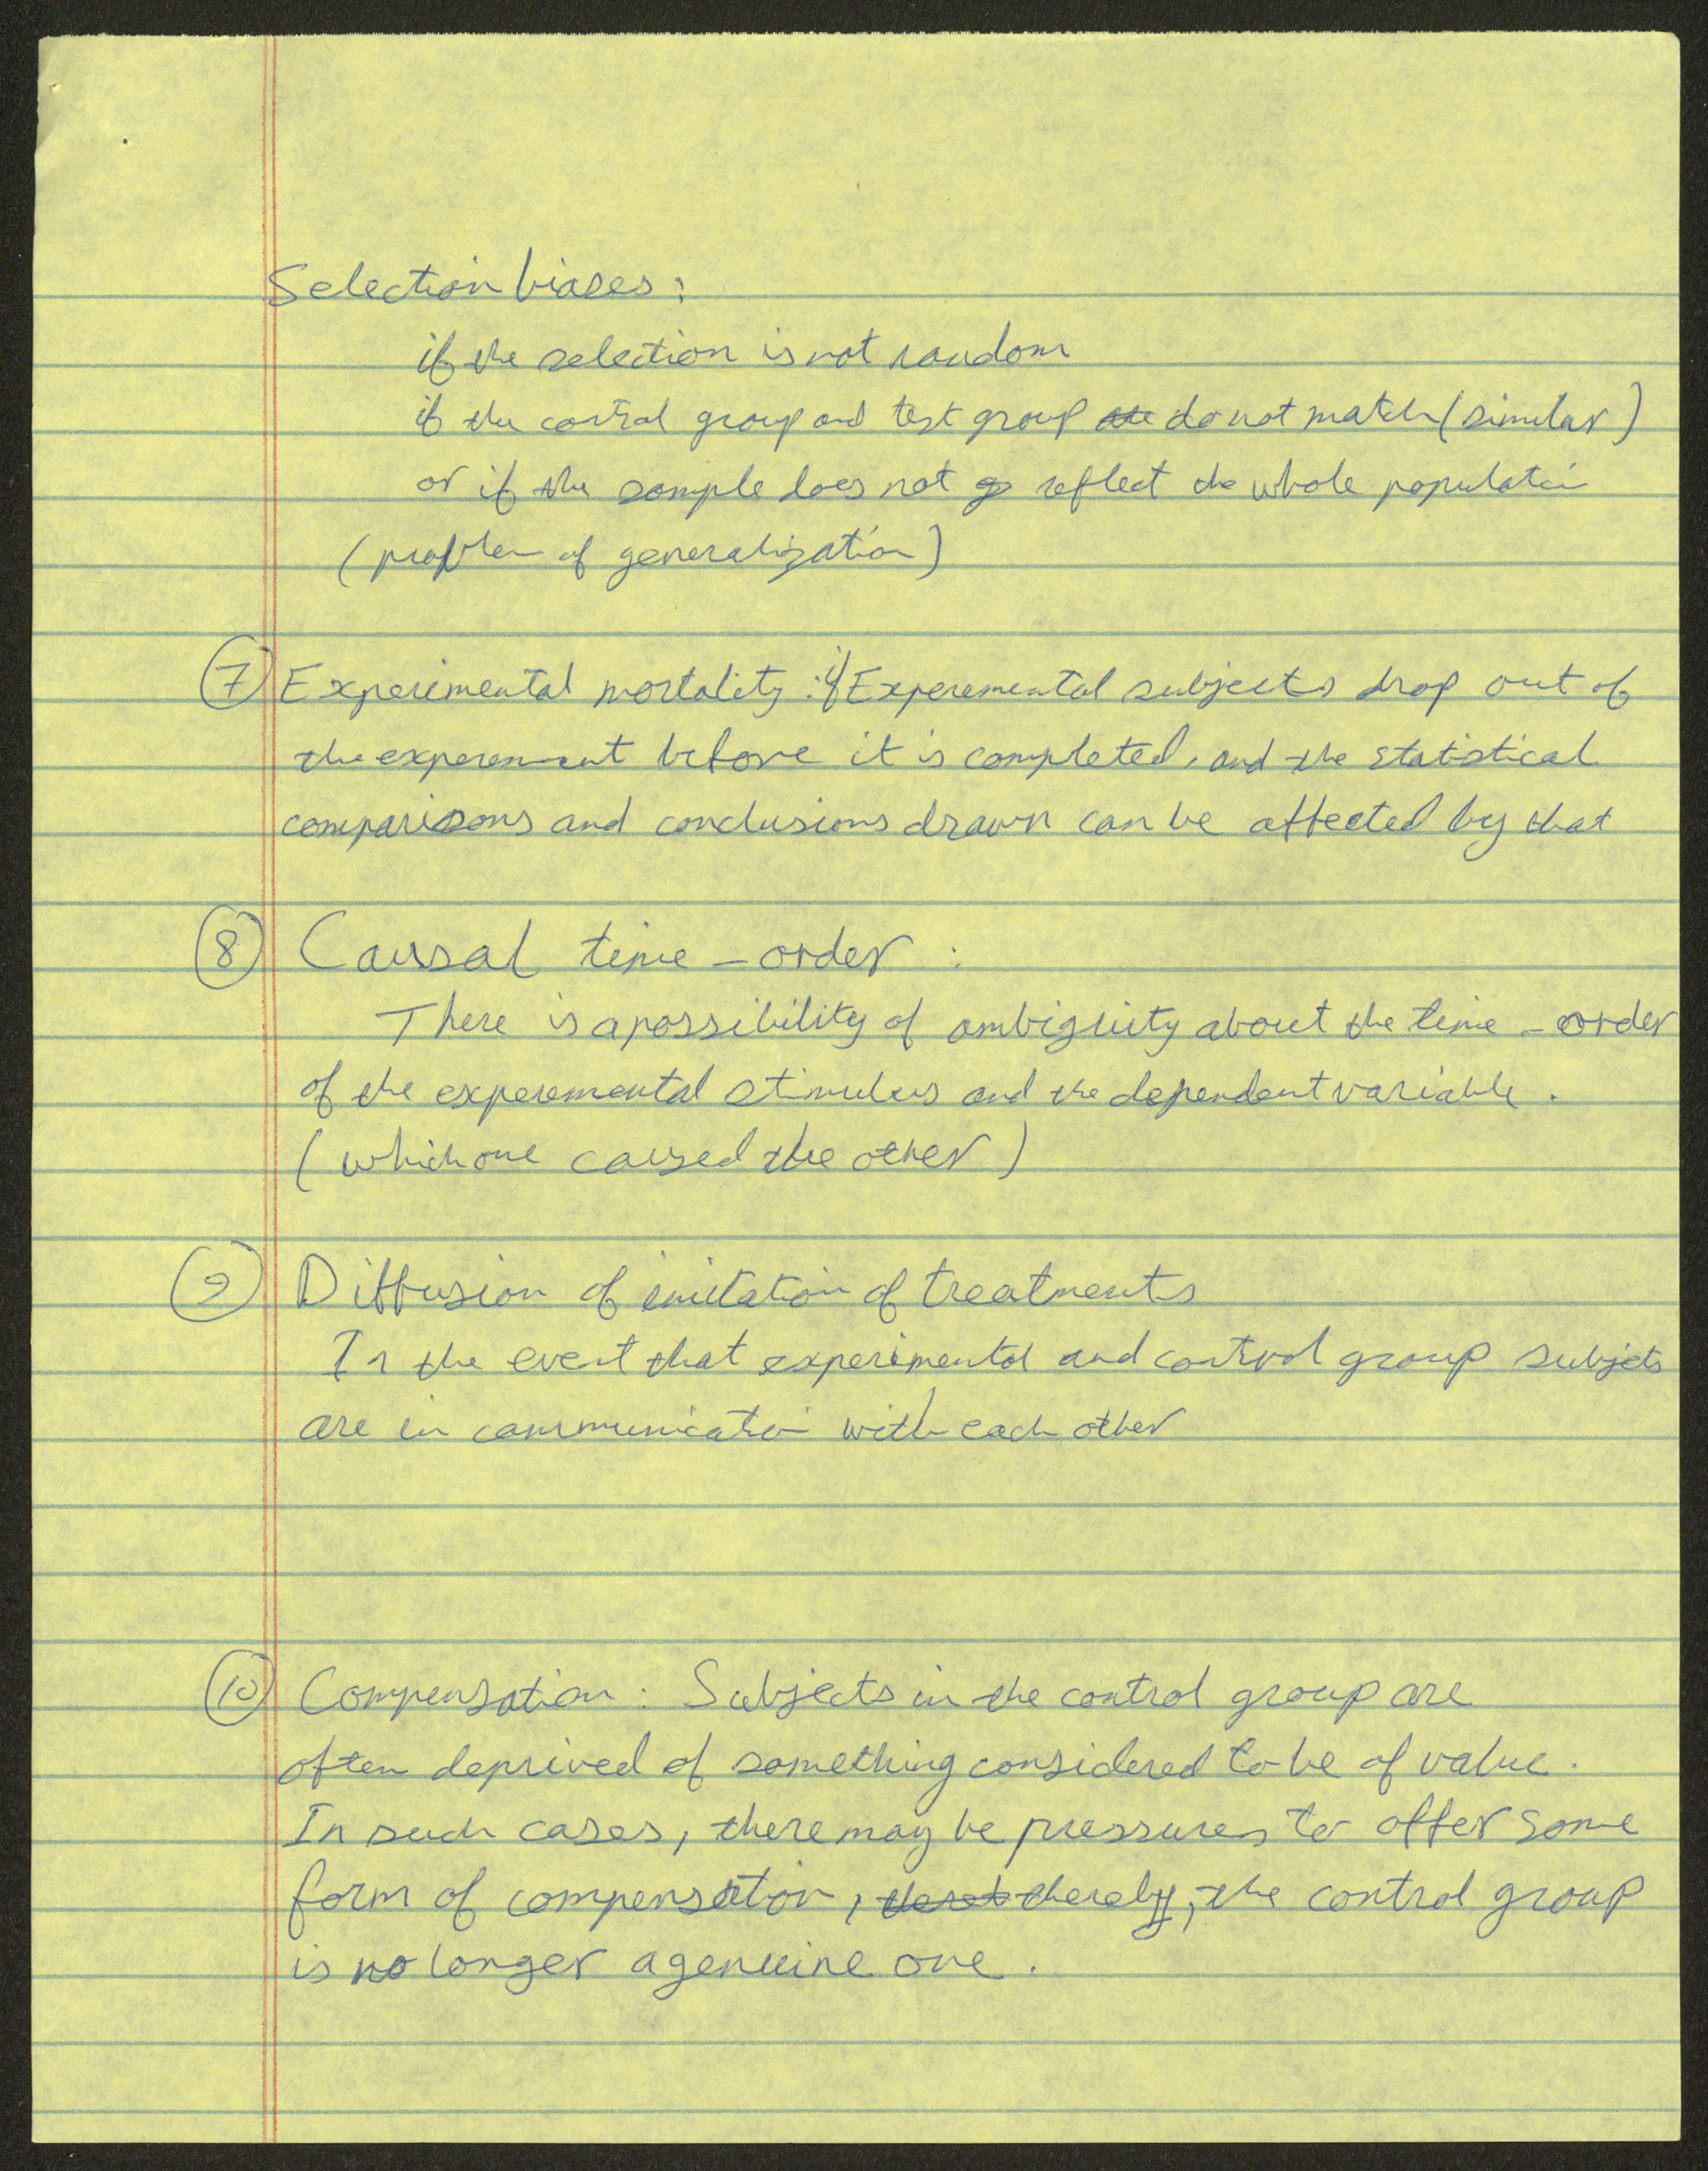 Selection biases:
if the selection is not random
if the control group and test group are do not match (similar)
or if the sample does not g reflect the whole population
(problem of generalization)
⑦ Experimental mortality: if Experemental subjects drop out of
the experement before it is completed, and the statistical
comparisons and conclusions drawn can be affected by that
⑧ Causal time-order:
There is a possibility of ambiguity about the time-order
of the experemental stimulus and the dependent variable.
(which one caused the other)
⑨ Diffusion of imitation of treatments
In the event that experimental and control group subjets
are in communication with each other
⑩ Compensation: Subjects in the control group are
often deprived of something considered to be of value.
In such cases, there may be pressures to offer some
form of compensation, thereb thereby, the control group
is no longer a genuine one.